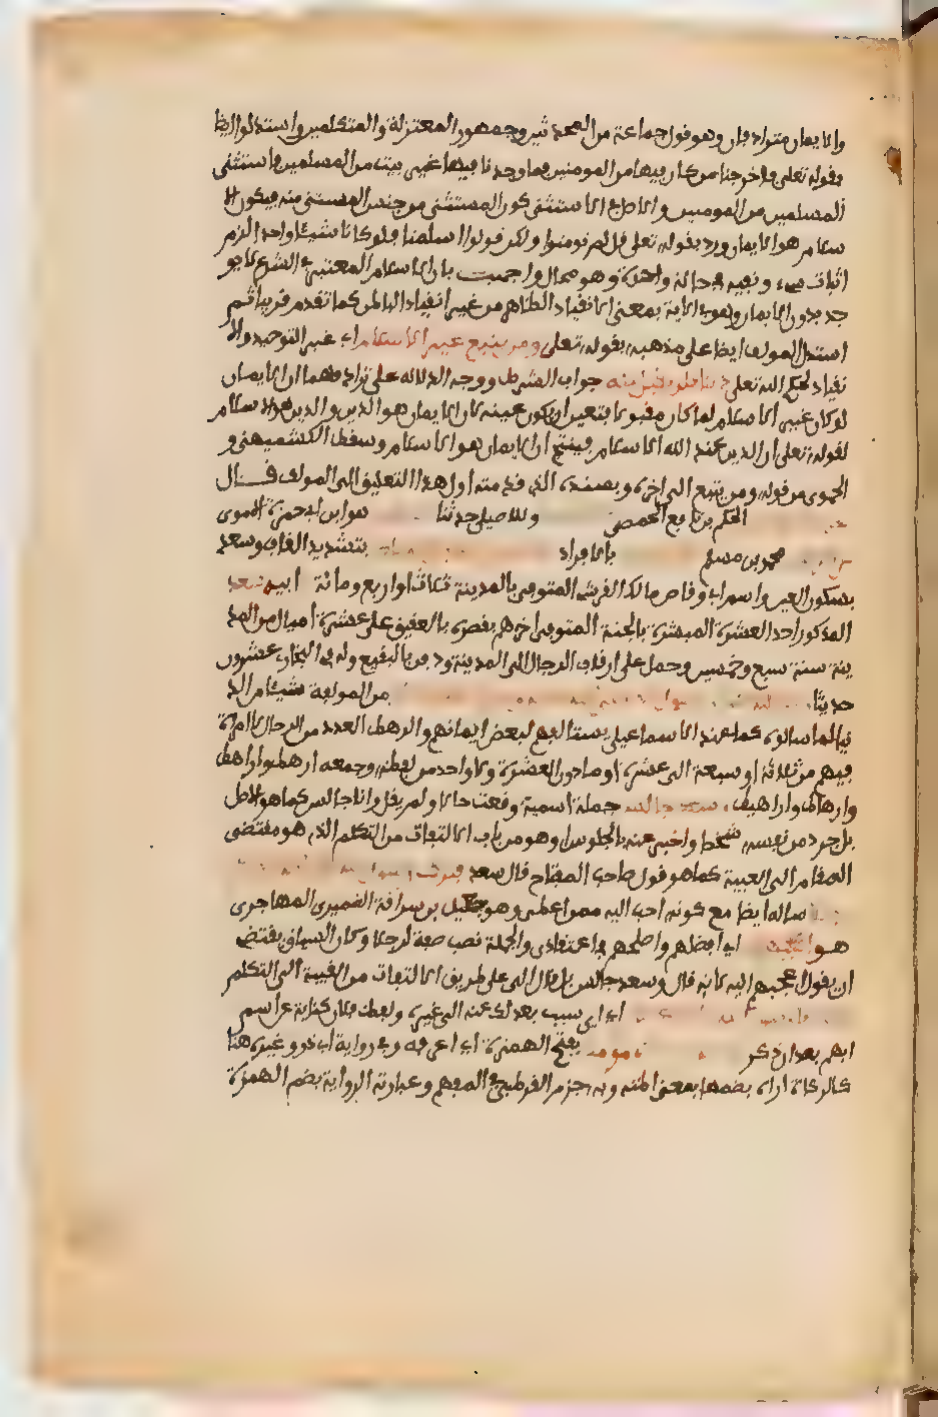 والايمان مترادفان وهو قول جماعة من المحدثين وجمهور المعتزلة والمتكلمين واستدلوا ايضا
بقوله تعلى فاخرجنا من كان فيها من المومنين فما وجدنا فيها غير بيت من المسلمين فاستثنى
المسلمين من المومنين والاصل في الاستثنى كون المستثنى من جنس المستثنى منه فيكون الا
سلام هو الايمان ورد بقوله تعلى قل لم تومنوا ولكن قولوا اسلمنا فلو كانا شيئا واحدا لزم
اثبات شيء ونفيه في حالة واحدة وهو محال واجيب بان الاسلام المعتبر في الشرع لا يو
جد بدون الايمان وهو في الاية بمعنى الانقياد الظاهر من غير انقياد الباطن كما تقدم قريبا ثم
استدل المولف ايضا على مذهبه بقوله تعلى ومن يبتغ غير الاسلام اي غير التوحيد والا
نقياد لحكم الله تعلى دينا فلن يقبل منه جواب الشرط ووجه الدلالة على ترادفهما ان الايمان
لو كان غير الاسلام لما كان مقبولا فتعين ان يكون عينه لان الايمان هو الدين والدين هو الاسلام
لقوله تعلى ان الدين عند الله الاسلام فينتج ان الايمان هو الاسلام وسقط للكشميهني و
الحموي من قوله ومن يبتغ الى اخره وبسنده الذي قدمته اول هذا التعليق الى المولف قال
الحكم بن نافع الحمصي وللاصيلي حدثنا هو ابن ابي حمزة الاموي
محمد بن مسلم بالافراد بتشديد القاف وسعد
بسكون العين واسم ابي وقاص مالك القرشي المتوفى بالمدينة ثلاث او اربع ومائة ابيه سعد
المذكور احد العشرة المبشرة بالجنة المتوفى اخرهم بقصره بالعقيق على عشرة اميال من المد
ينة سنة سبع وخمسين وحمل على ارقاب الرجال الى المدينة ودفن بالبقيع وله في البخاري عشرون
حديثا من المولفة شيئا من الد
نيا لما سالوه كما عند الاسماعيلي يستالفهم لبعض ايمانهم والرهط العدد من الرجال لا امراة
فيهم من ثلاثة او سبعة الى عشرة او ما دون العشرة ولا واحد من لفظه وجمعه ارهط واراهط
وارهاط واراهيط وسعد جالس جملة اسمية وقعت حالا ولم يقل وانا جالس كما هو الاصل
بل جرد من نفسه شخصا واخبر عنه بالجلوس او هو من باب الالتفات من التكلم الذي هو مقتضى
المقام الى الغيبة كما هو قول صاحب المفتاح قال سعد فترك رسول
ساله ايضا مع كونه احب اليه ممن اعطى وهو جعيل بن سراقة الضميري المهاجري
هو اي افضلهم واصلحهم في اعتقادي والجملة نصب صفة لرجلا وكان السياق يقتضي
ان يقول اعجبهم اليه لانه قال وسعد جالس بل قال الى على طريق الالتفات من الغيبة الى التكلم
اي اي سبب بعدلك عنه الى غيره ولفظ فلان كناية عن اسم
ابهم بعد ان ذكر مومنا بفتح الهمزة اي اعلمه وفي رواية ابي ذر وغيره هنا
كالزكاة اراه بضمها بمعنى اظنه وبه جزم القرطبي في المفهم وعبارته الرواية بضم الهمزة